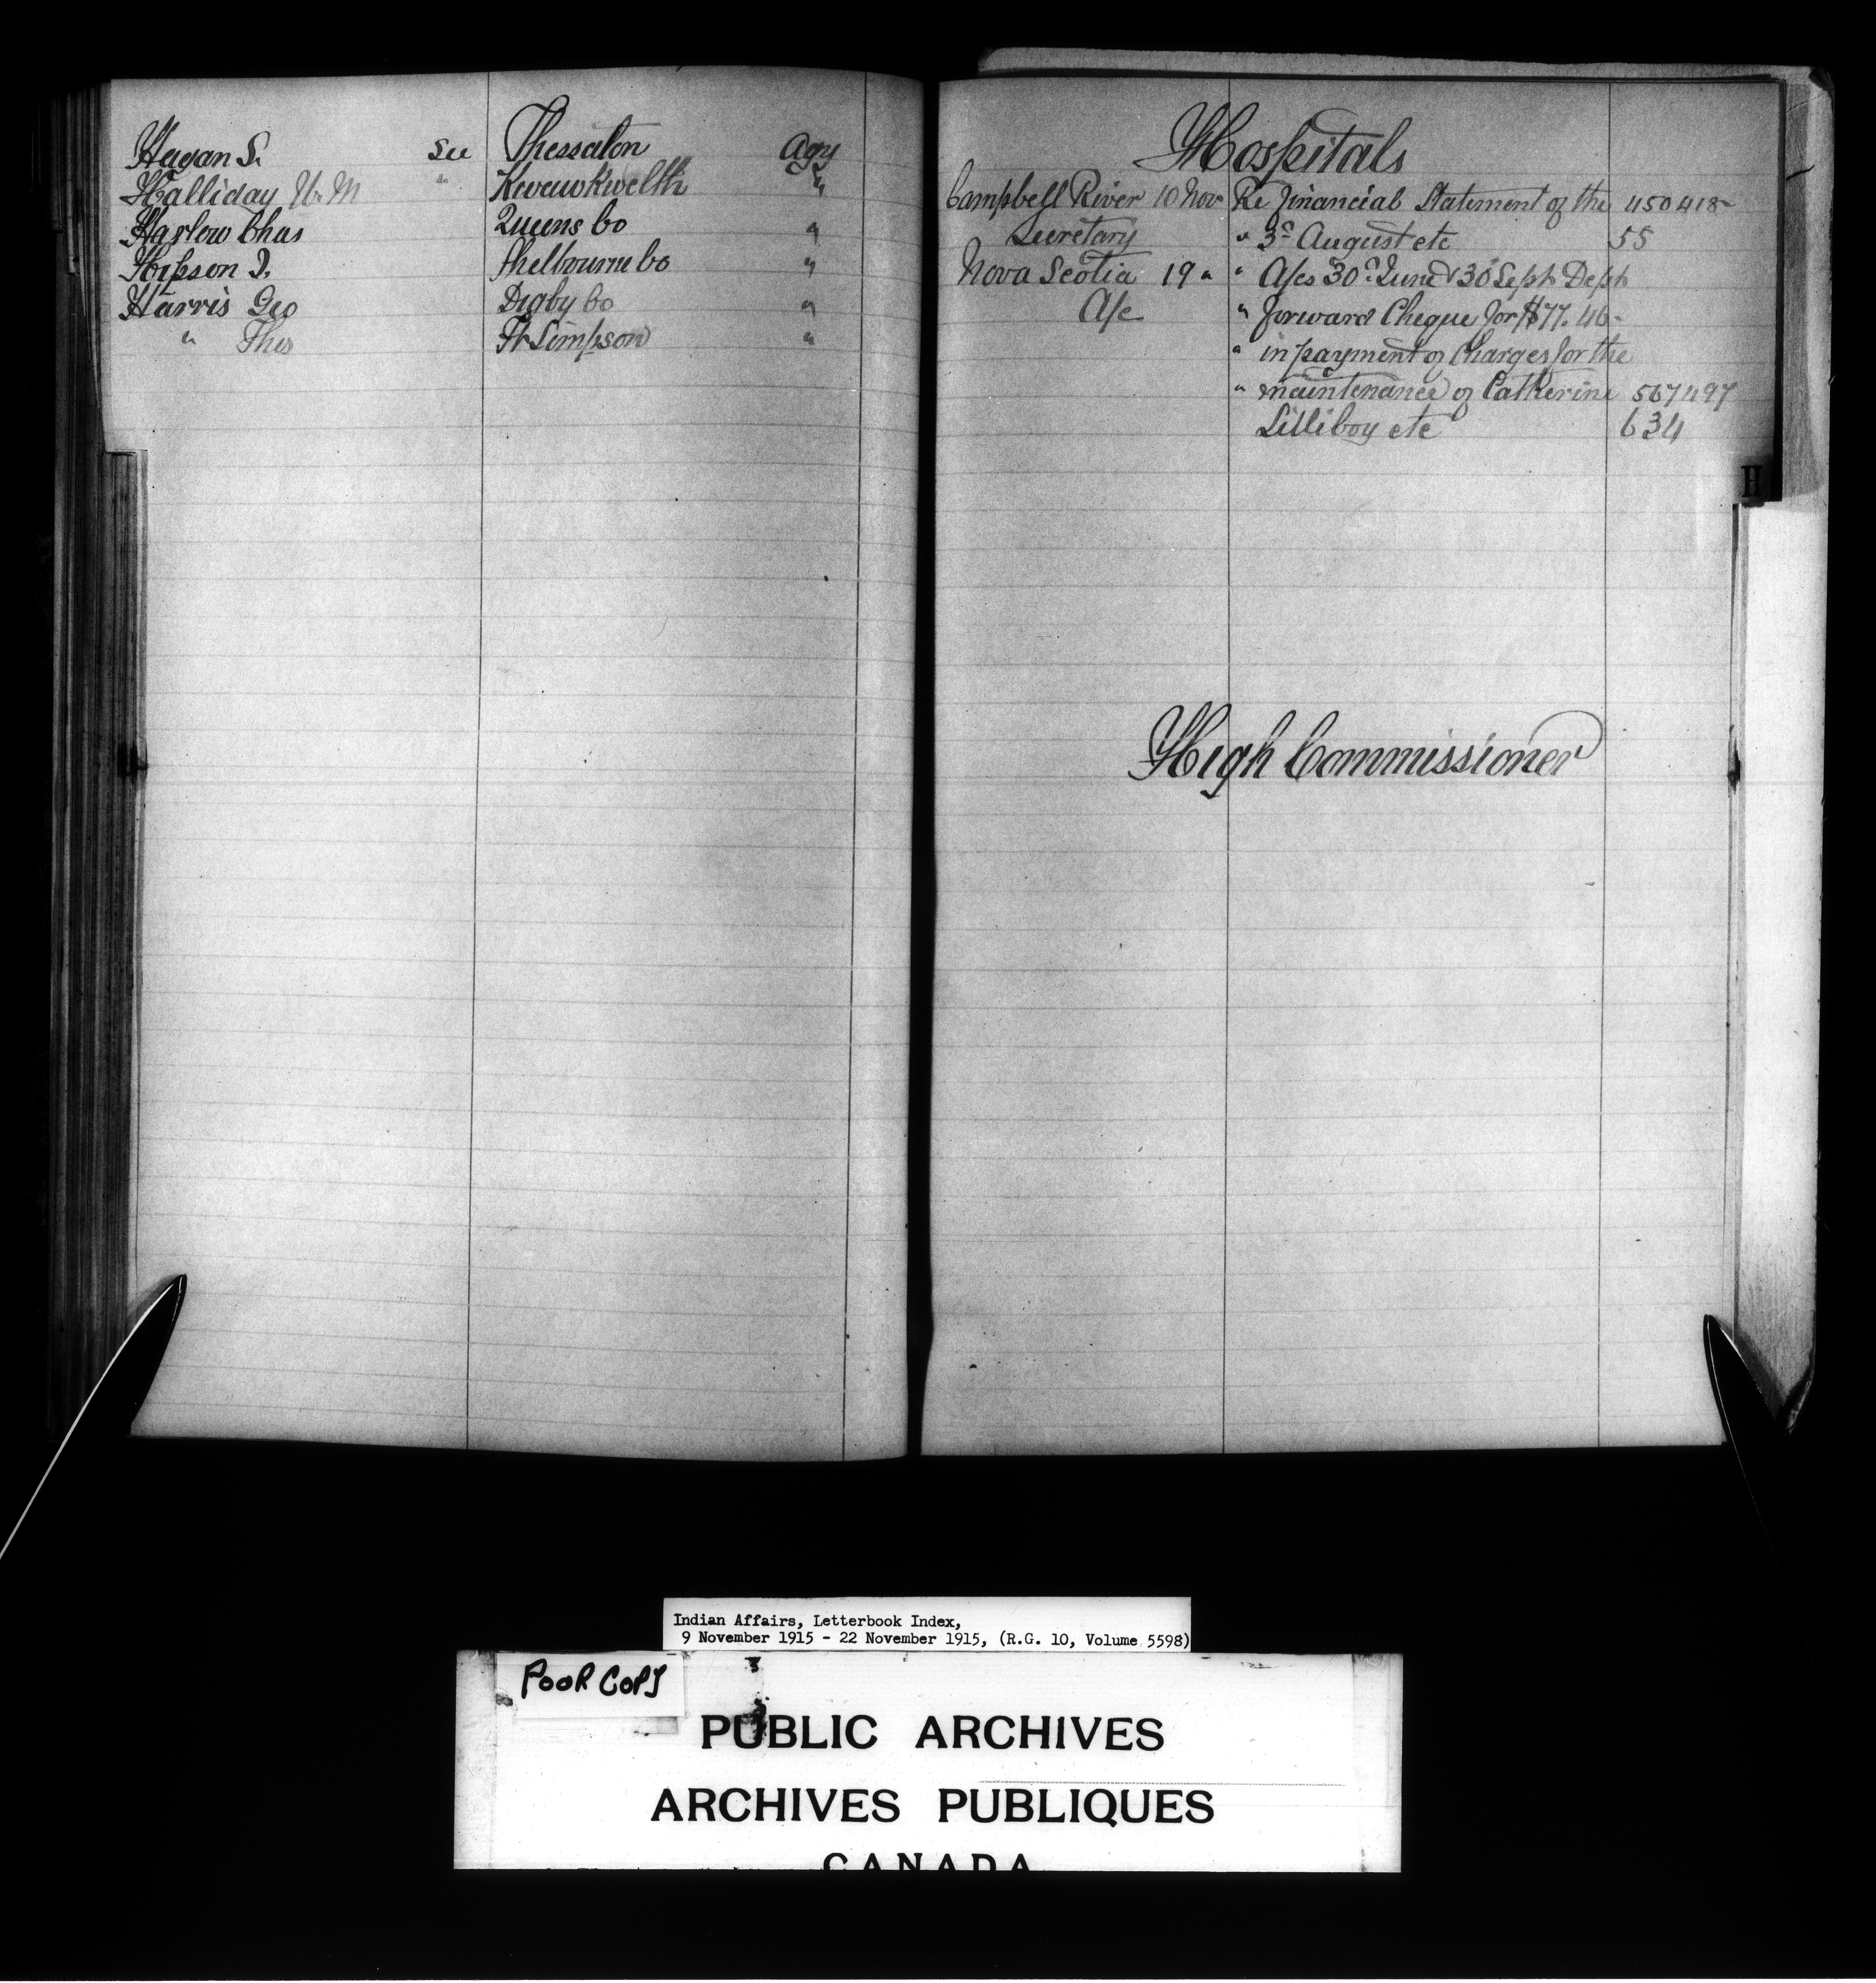 Hagan S. See Thessalon Agy
Halliday W. M " Kwawkwelth "
Harlow Chas Queens Co "
Hipson J. Shelbourne Co "
Harris Geo Digby Co "
" Thos Ft Simpson "
Hospitals
Campbell River 10 Nov Re financial Statement of the 450418-
Secretary " 3rd August etc 55
Nova Scotia 19 " " A/cs 30th June & 30 Sept Dept
A/c " forward Cheque for $77.46-
" in payment of Charges for the
" maintenance of Catherine 567497
Lilliboy etc 634
H
High Commissioner
Indian Affairs, Letterbook Index,
9 November 1915 - 22 November 1915, (R.G. 10, Volume 5598)
POOR COPY
PUBLIC ARCHIVES
ARCHIVES PUBLIQUES
CANADA